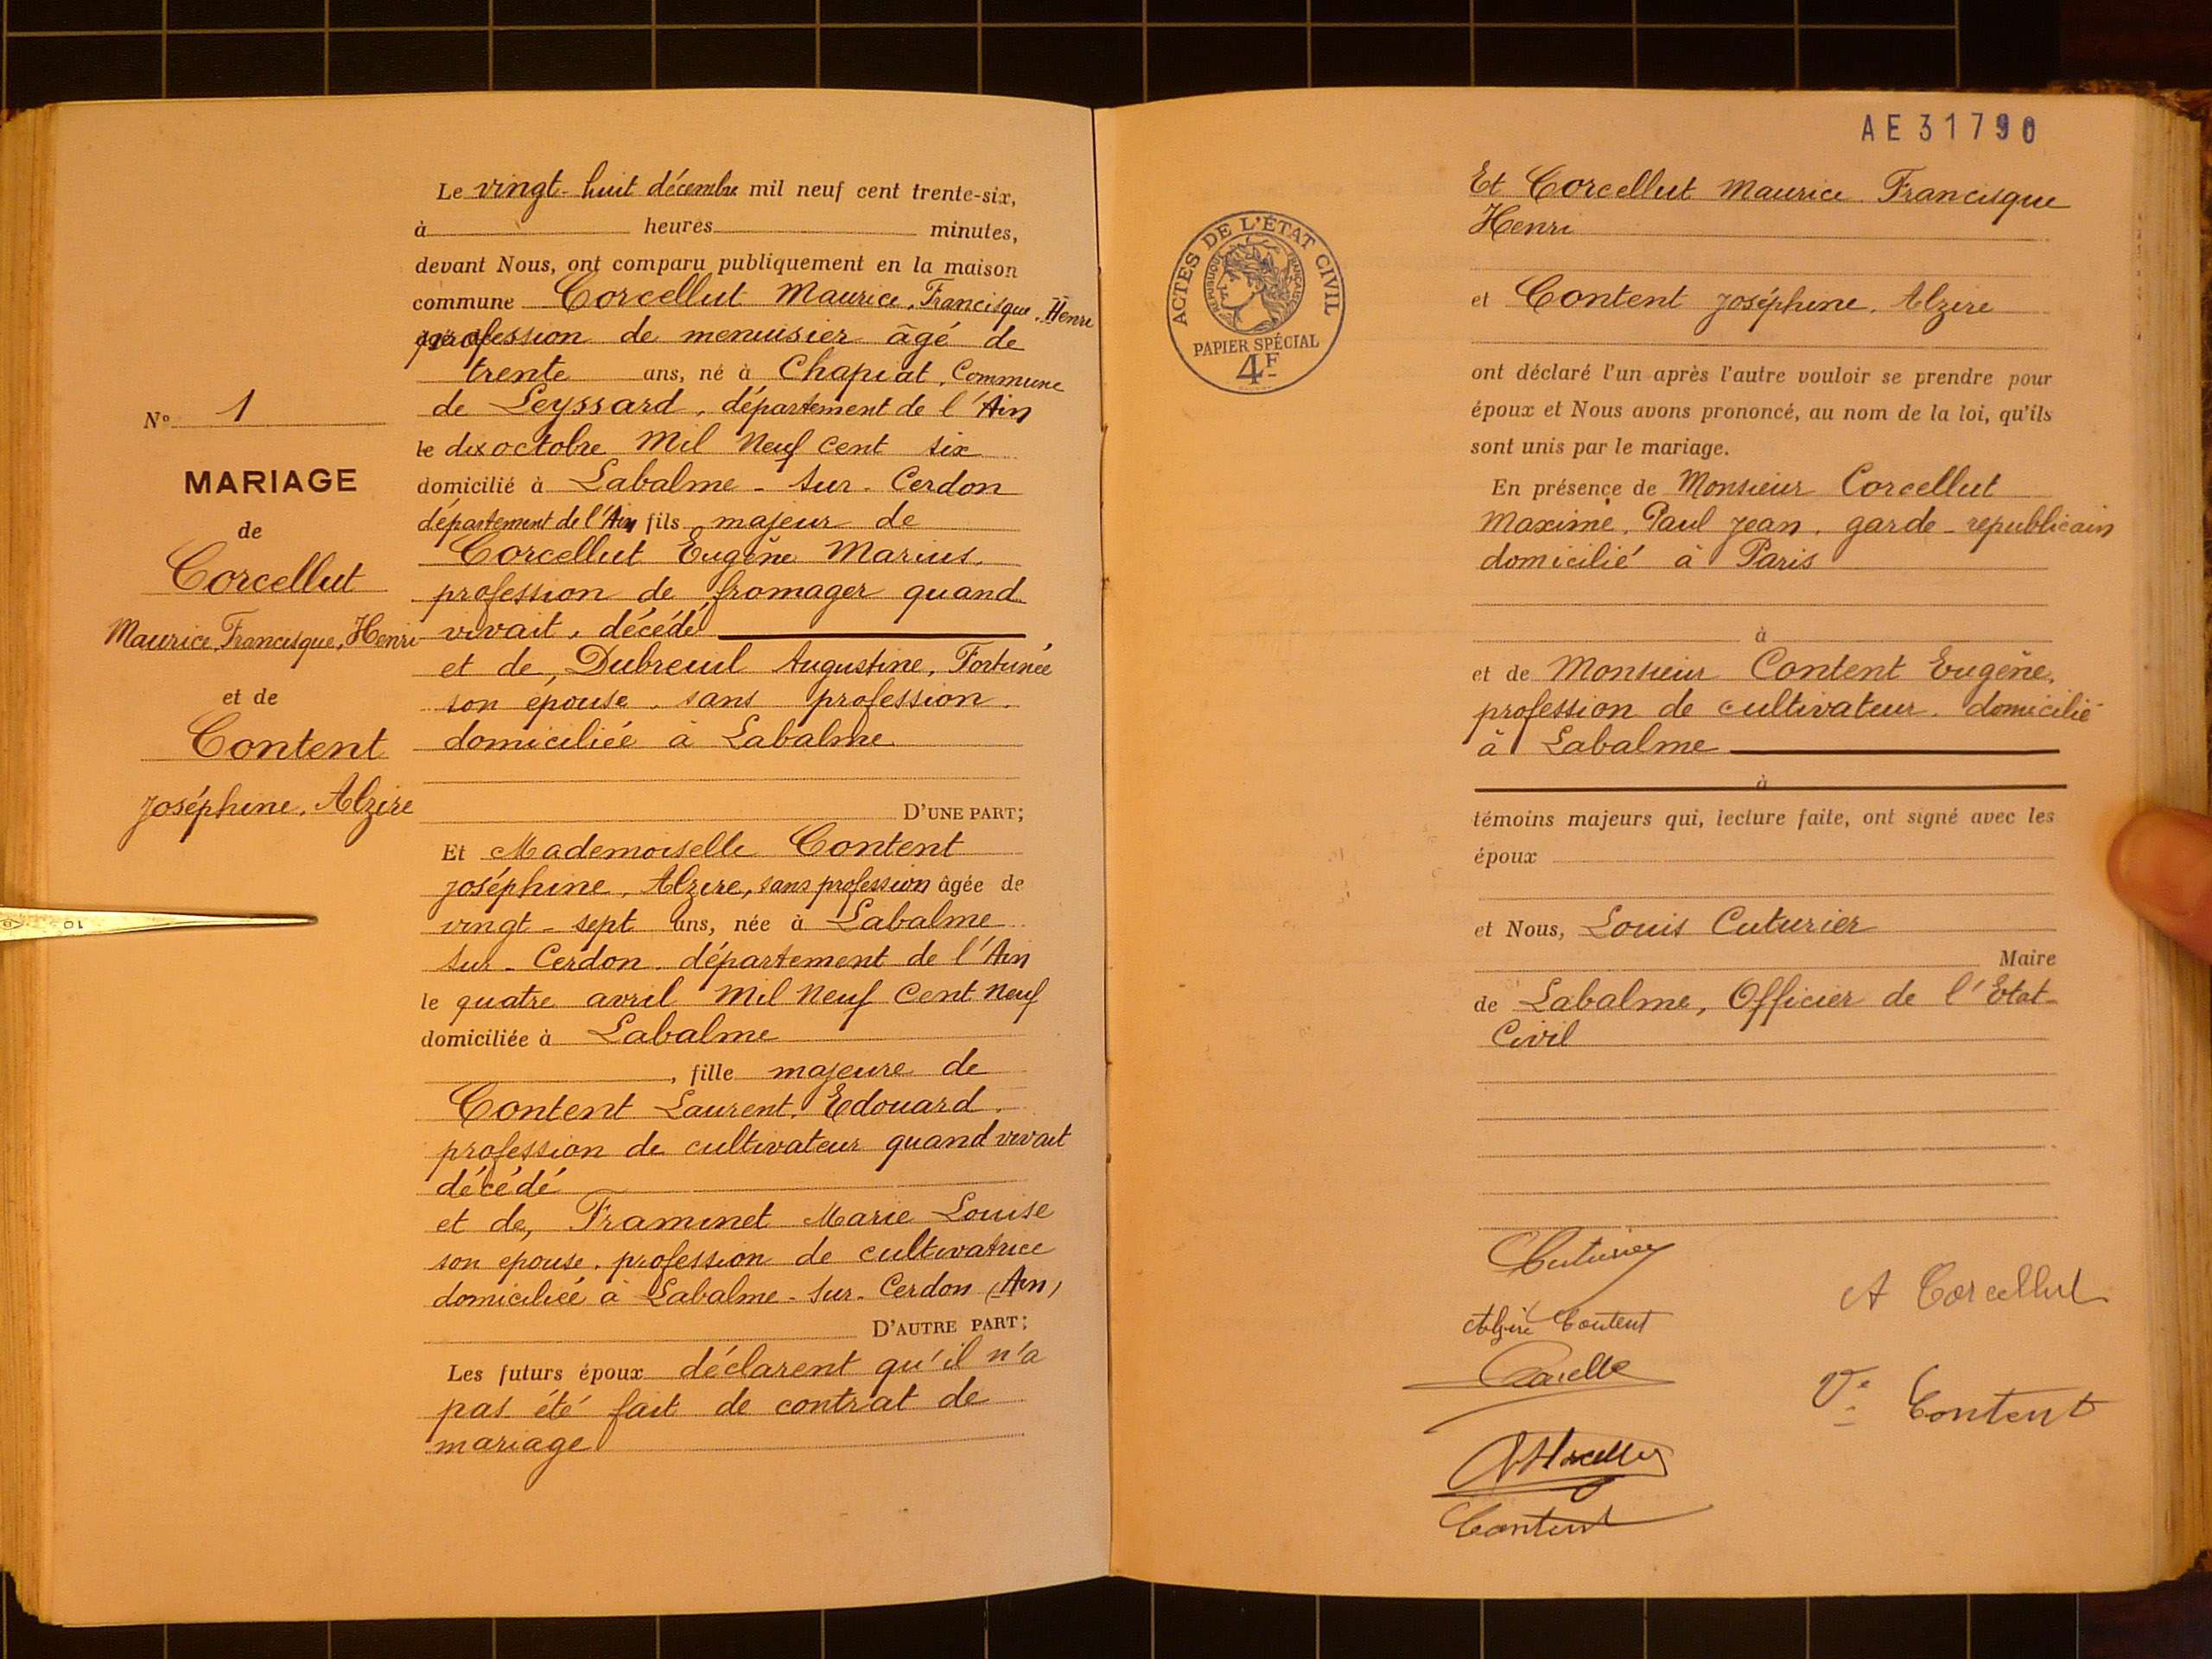 Le vingt-huit décembre mil neuf cent trente-six,
à heures minutes,
devant Nous, ont comparu publiquement en la maison
commune Corcellut Maurice, Francisque, Henri
profession de menuisier âgé de
trente ans, né à Chapiat, Commune
de Leyssard, département de l'Ain
le dix octobre Mil Neuf cent six
domicilié à Labalme-sur-Cerdon
département de l'Ain fils majeur de
Corcellut Eugène Marius,
profession de fromager quand
vivait, décédé
et de, Dubreuil Augustine, Fortunée
son épouse, sans profession,
domiciliée à Labalme
D'UNE PART;
Et Mademoiselle Content
Joséphine, Alzire, sans profession âgée de
vingt-sept ans, née à Labalme
sur-Cerdon, département de l'Ain
le quatre avril Mil Neuf Cent Neuf
domiciliée à Labalme
, fille majeure de
Content Laurent, Edouard,
profession de cultivateur quand vivait
décédé
et de, Framinet Marie Louise
son epouse, profession de cultivatrice
domiciliée à Labalme-sur-Cerdon (Ain)
D'AUTRE PART;
Les futurs époux déclarent qu'il n'a
pas été fait de contrat de
mariage
N° 1
MARIAGE
de
Corcellut
Maurice, Francisque, Henri
et de
Content
Joséphine, Alzire
10
AE31790
ACTES DE L'ÉTAT CIVIL
RÉPUBLIQUE FRANÇAISE
PAPIER SPÉCIAL
4F
Et Corcellut Maurice Francisque
Henri
et Content Joséphine, Alzire
ont déclaré l'un après l'autre vouloir se prendre pour
époux et Nous avons prononcé, au nom de la loi, qu'ils
sont unis par le mariage.
En présence de Monsieur Corcellut
Maxime, Paul Jean, garde-republicain
domicilié à Paris
à
et de Monsieur Content Eugène,
profession de cultivateur, domicilié
à Labalme
à
témoins majeurs qui, lecture faite, ont signé avec les
époux
et Nous, Louis Cuturier
Maire
de Labalme, Officier de l'Etat-
Civil
Cuturier
Alzire Content
A Corcellut
Ve Content
Content